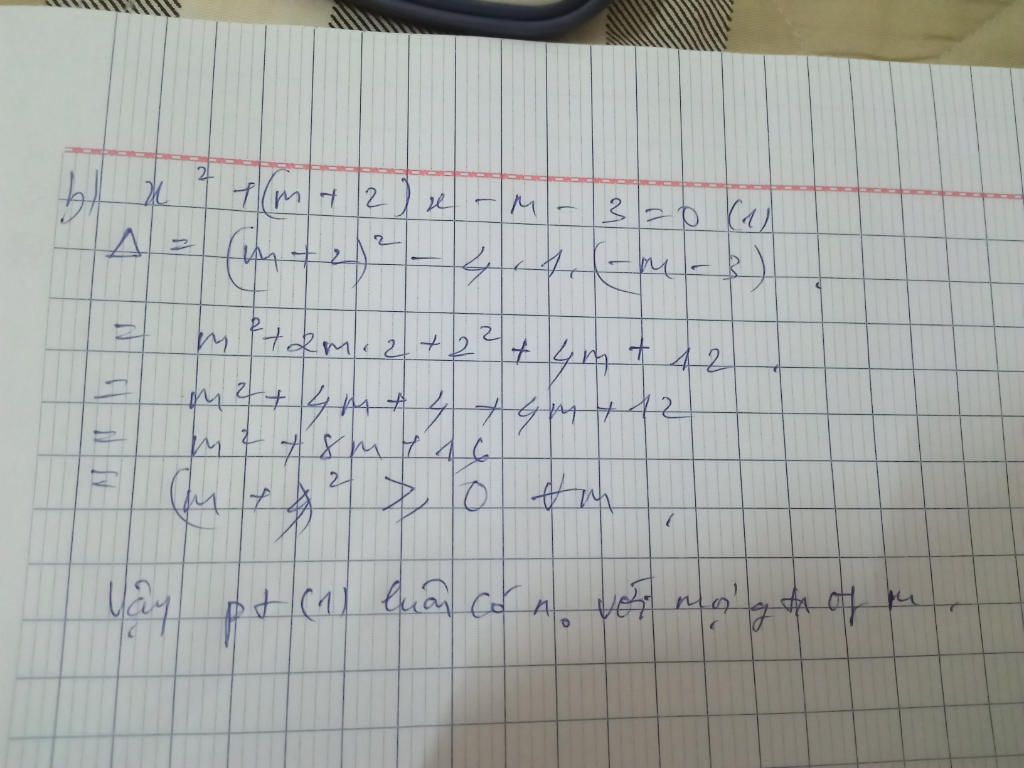 b) x² + (m + 2) x - m - 3 = 0 (1)
Δ = (m + 2)² - 4 . 1 . (-m - 3)
= m² + 2m . 2 + 2² + 4m + 12
= m² + 4m + 4 + 4m + 12
= m² + 8m + 16
= (m + 4)² ≥ 0 ∀m
Vậy pt (1) luôn có n₀ với mọi gtr of m .